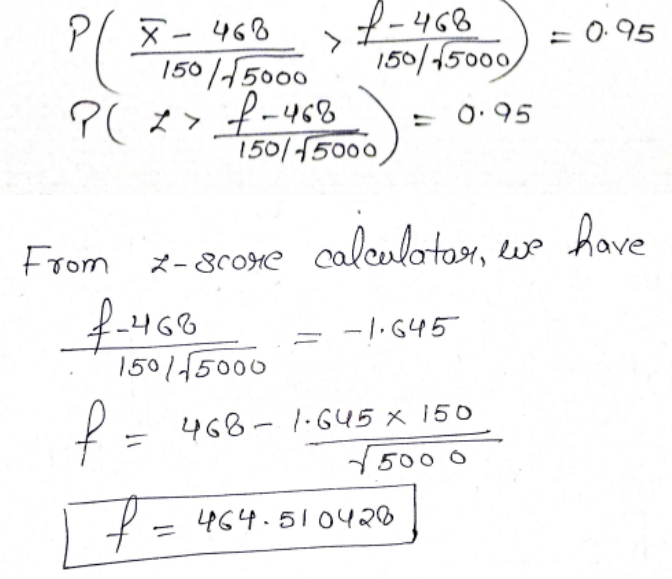 P( (x̄ - 468)/(150/√5000) > (f - 468)/(150/√5000) ) = 0.95
P( z > (f - 468)/(150/√5000) ) = 0.95
From z-score calculator, we have
(f - 468)/(150/√5000) = -1.645
f = 468 - (1.645 × 150)/√5000
f = 464.510428